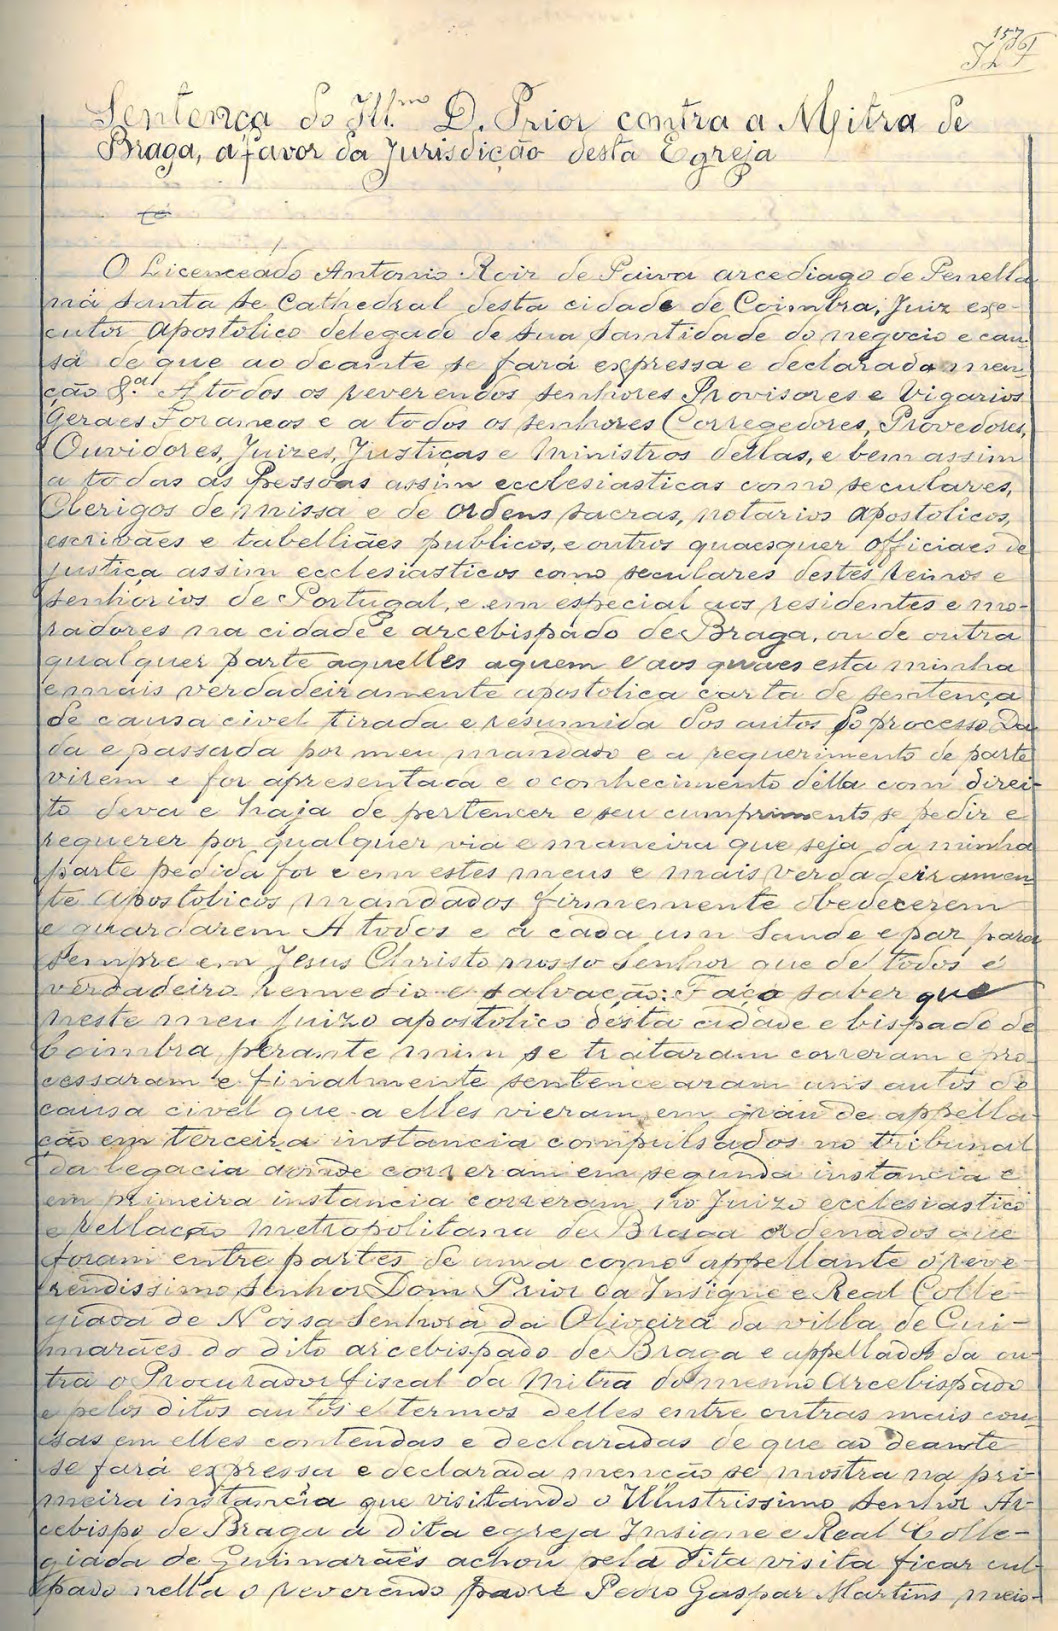 157
Sentença do Ill.mo D. Prior contra a Mitra de
Braga, a favor da Jurisdição desta Egreja
O Licenceádo Antonio Roiz de Paiva arcediago de Penella
ná santa se Cathedral desta cidade de Coimbra, Juiz exe-
cutor apostolico delegado de sua santidade do negocio e cau-
sa de que ao deante se fará expressa e declarada men-
ção &.a A todos os reverendos senhores Provisores e Vigarios
Geraes Foraneos e a todos os senhores Corregedores, Provedores,
Ouvidores, Juizes, Justiças e Ministros dellas, e bem assim
a todas as Pessoas assim ecclesiasticas como seculares,
Clerigos de missa e de ordens sacras, notarios apostolicos,
escrivães e tabelliães publicos, e outros quaesquer officiaes de
justiça assim ecclesiasticos como seculares destes reinos e
senhorios de Portugal, e em especial aos residentes e mo-
radores na cidade e arcebispádo de Braga, ou de outra
qualquer parte aquelles aquem e aos quaes esta minha
e mais verdadeiramente apostolica carta de sentença
de causa civel tirada e resumida dos autos do processo Da
da e passada por meu mandado e a requerimento de parte
virem e for apresentaca e o conhecimento della com direi-
to deva e haja de pertencer e seu cumprimento se pedir e
requerer por qualquer via e maneira que seja da minha
parte pedida for e em estes meus e mais verdadeiramen-
te apostolicos mandados firmemente obedecerem
e guardarem A todos e a cada um Saude e paz para
sempre em Jesus Christo nosso Senhor que de todos é
verdadeiro remedio e salvação: Faço saber que
neste meu juizo apostolico desta cidade e bispado de
Coimbra perante mim se trataram correram e pro
cessaram e finalmente sentencearam uns autos de
causa civel que a elles vieram em gráu de appella-
ção em terceira instancia compulsados no tribunal
da legacia aonde correram em segunda instancia e
em primeira instancia correram no Juizo ecclesiastico
e Rellação metropolitana de Braga ordenados que
foram entre partes de uma como appellante o reve-
rendissimo senhor Dom Prior da Insigne e Real Colle-
giada de Nossa Senhora da Oliveira da villa de Gui-
marães do dito arcebispado de Braga e appellados da ou-
tra o Procurador fiscal da mitra do mesmo Arcebispado
e pelos ditos autos e termos delles entre outras mais cou-
sas em elles contendas e declaradas de que ao deante
se fará expressa e declarada menção se mostra na pri-
meira instancia que visitando o Illustrissimo Senhor Ar-
cebispo de Braga a dita egreja Insigne e Real Colle-
giada de Guimarães achou pela dita visita ficar cul-
pado nella o reverendo padre Pedro Gaspar Martins meio-